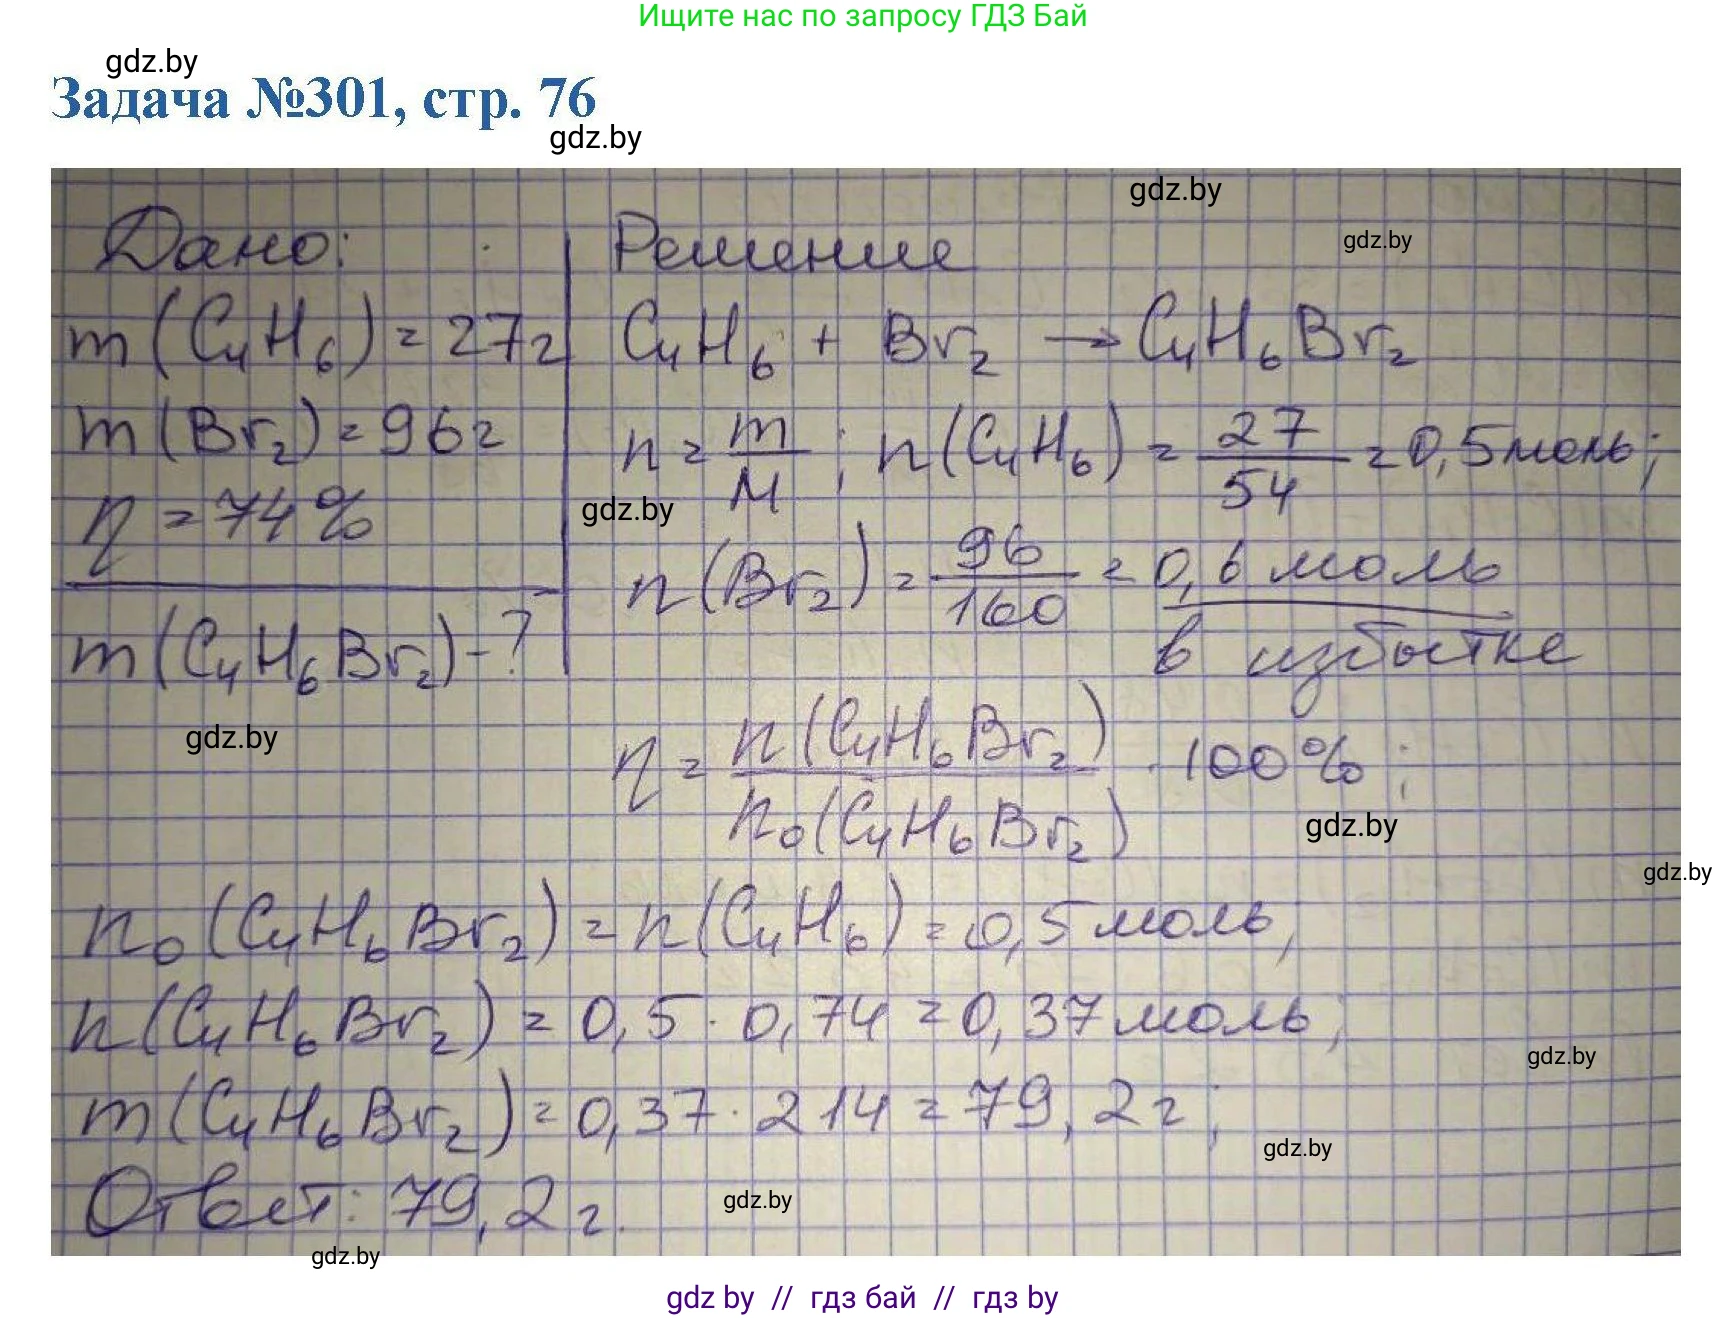 Ищите нас по запросу ГДЗ Бай
gdz.by
Задача №301, стр. 76
gdz.by
gdz.by
gdz.by
Дано:
m(C₄H₆) = 27г
m(Br₂) = 96г
η = 74%
m(C₄H₆Br₂) - ?
gdz.by
Решение
C₄H₆ + Br₂ → C₄H₆Br₂
n = m/M ; n(C₄H₆) = 27/54 = 0,5моль;
gdz.by
n(Br₂) = 96/160 = 0,6 моль
в избытке
η = n(C₄H₆Br₂)/n₀(C₄H₆Br₂) · 100%;
gdz.by
gdz.by
n₀(C₄H₆Br₂) = n(C₄H₆) = 0,5 моль;
n(C₄H₆Br₂) = 0,5 · 0,74 = 0,37 моль;
gdz.by
m(C₄H₆Br₂) = 0,37 · 214 = 79,2 г;
gdz.by
Ответ: 79,2 г.
gdz.by
gdz.by
gdz by // гдз бай // гдз by